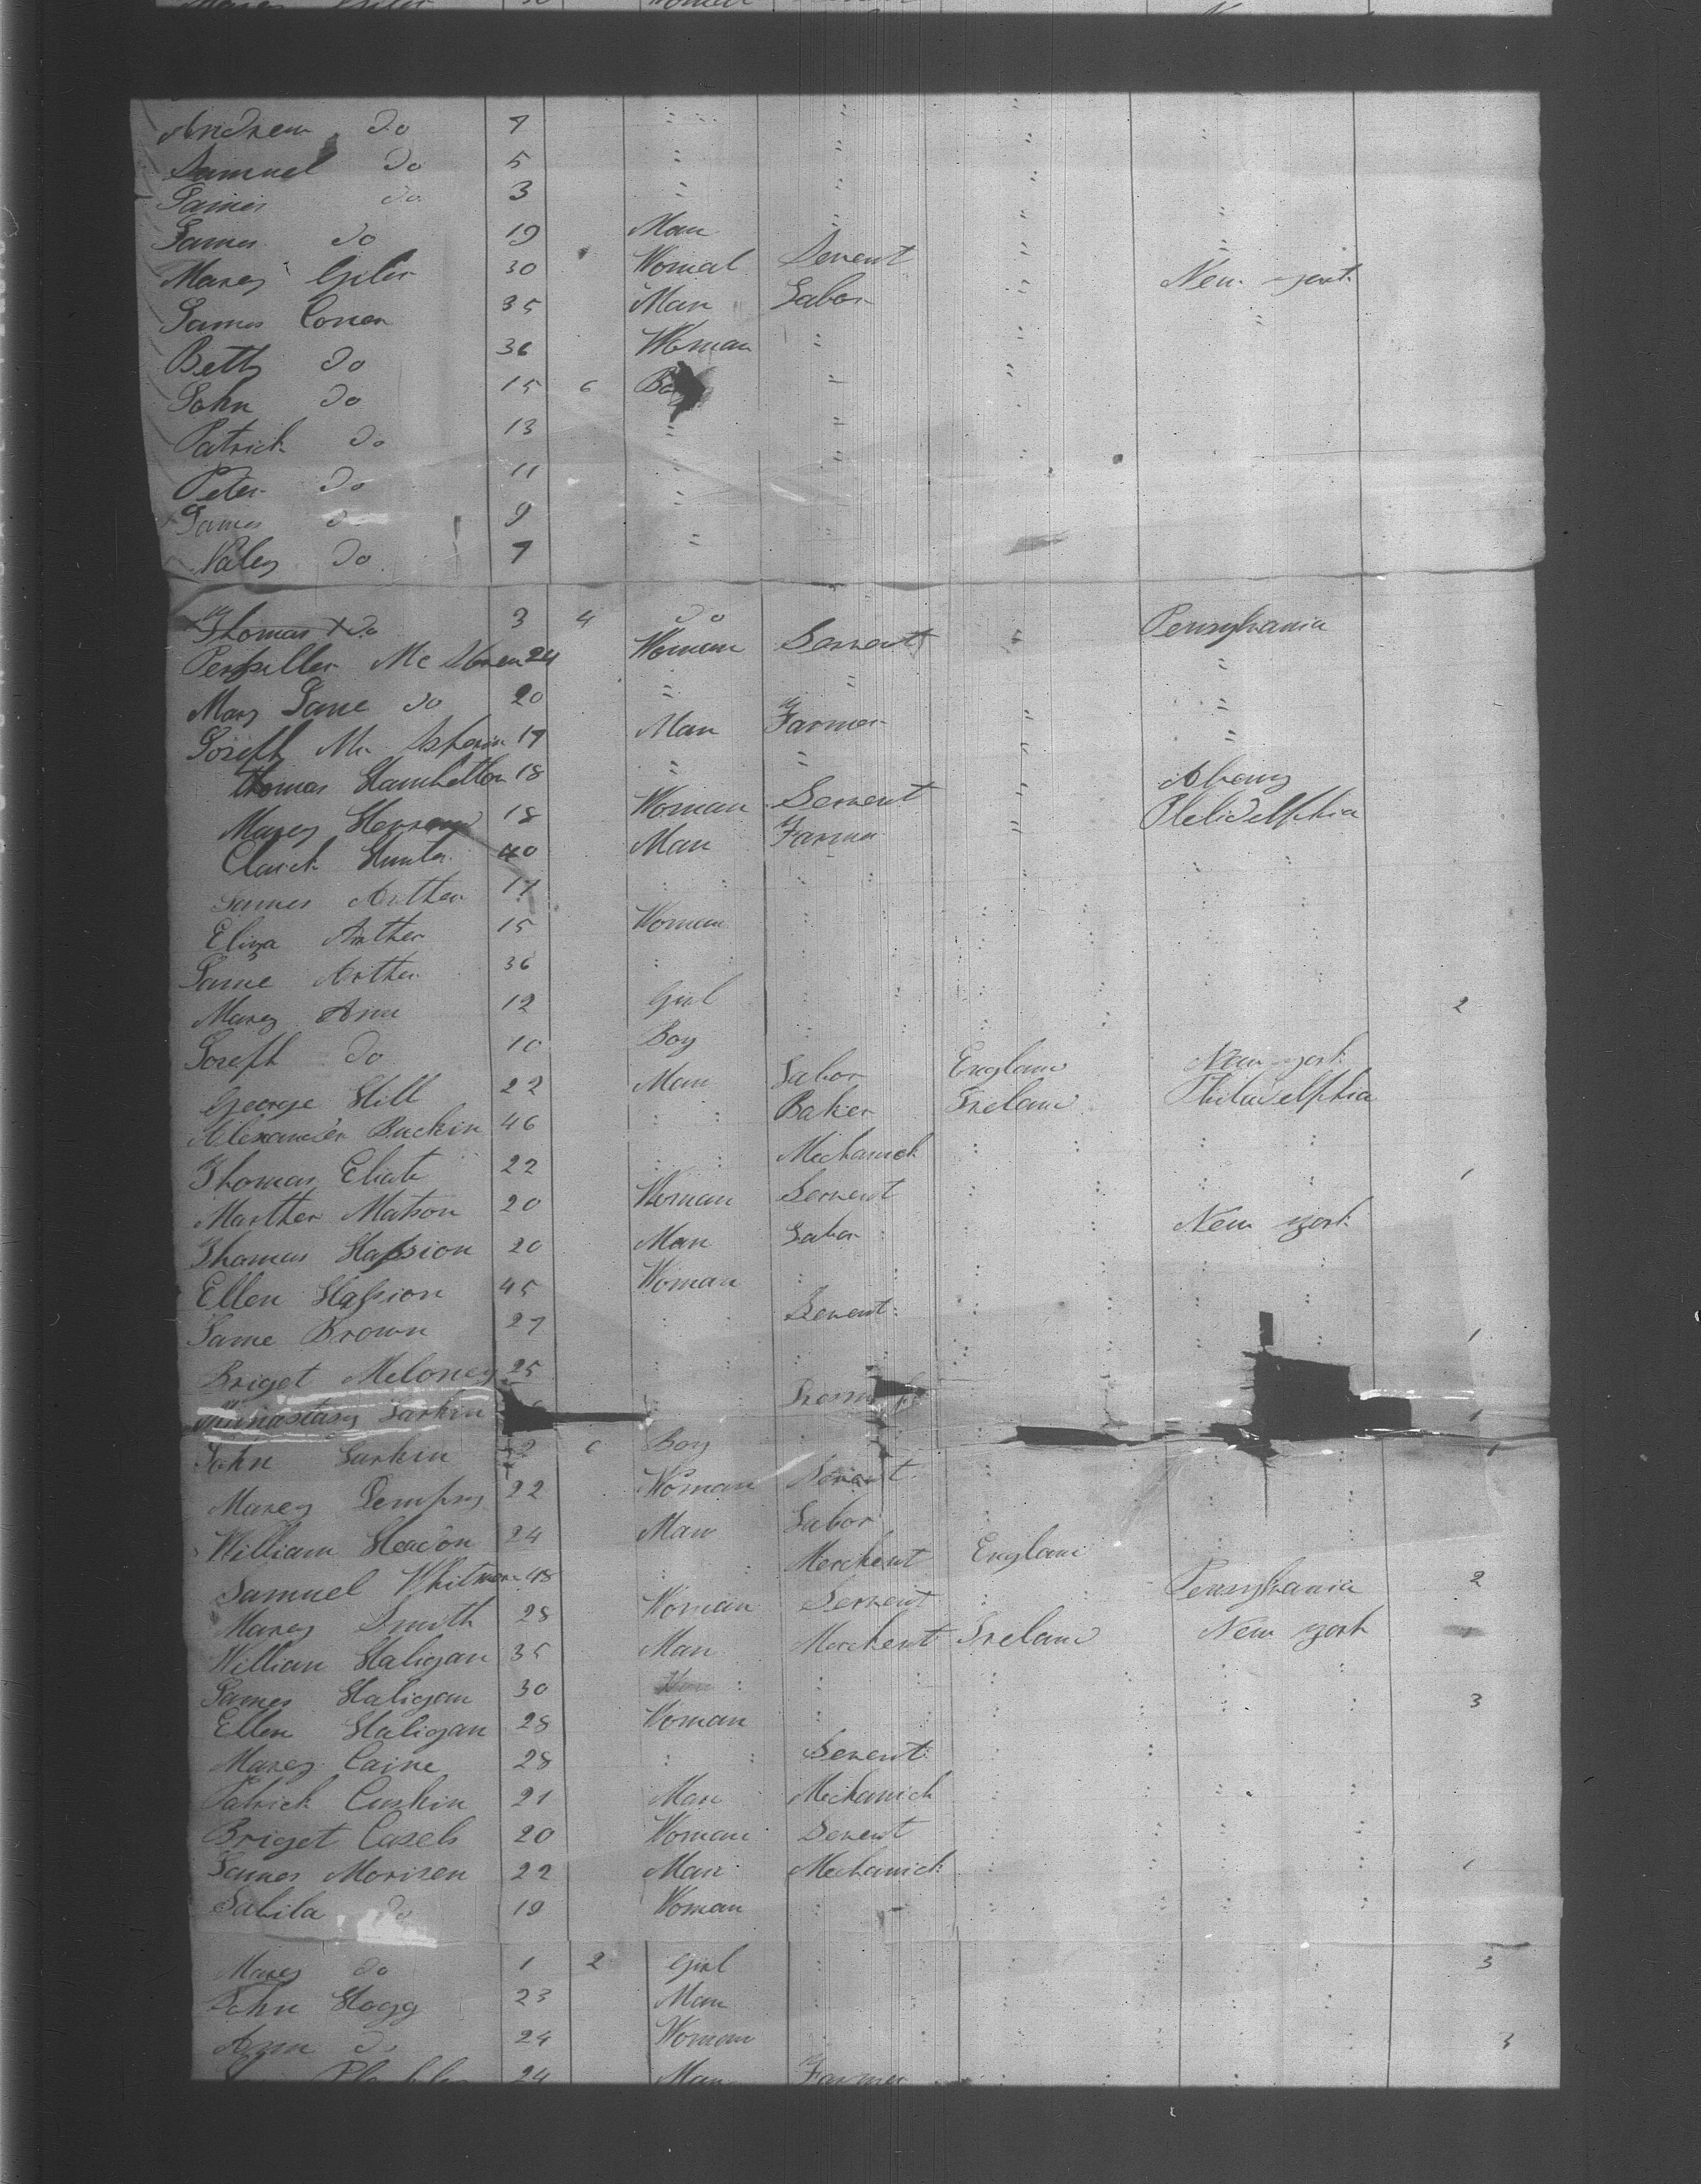 Andrew Do 7 " " " "
Samuel Do 5 " " " "
James Do 3 " " "
James Do 19 Man " " "
Marey Giler 30 Womal Servent " "
James Coner 35 Man Labor " New york
Betty Do 36 Woman " " "
John Do 15 6 Boy " "
Patrick Do 13 " "
Peter Do 11 " "
James Do 9 " "
Do 7 "
Thomas Do 3 4 Do Pensylvania
Mc 24 Woman Servent " "
Mary Jane Do 20 " " "
Joseph Mc 17 Man Farmer " "
Thomas Hamhelton 18 " " " Albany
Marey 18 Woman Servent " Pheliddelphia
Clarck Hunter 40 Man Farmer "
James Arther 17 " "
Eliza Arther 15 Woman "
Jane Arther 36 " "
Marey Ann 12 Girl " 2
Joseph Do 10 Boy "
George Hill 22 Man Labor England New york
Alexander Buckin 46 " Baker Ireland Philadelphia
Thomas Eliate 22 " Mechanick " "
Marther Matson 20 Woman Servent " " 1
Thomas Hassion 20 Man Labor " New york
Ellen Hassion 45 Woman " " "
Jane Brown 27 " Servent " "
Briget Meloney 25 " " " 1
Larkin
John Larkin 6 Boy " 1
Marey Dempsy 22 Woman Servent "
William 24 Man Labor " "
Samuel Whitmore 48 " Merchent England
Marey Smith 28 Woman Servent " Pensylvania 2
William Haligan 35 Man Merchent Ireland New york
James Haligan 30 " " " "
Ellen Haligan 28 Woman " " " 3
Marey Caine 28 " Servent " "
Patrick Cuskin 21 Man Mechanick " "
Briget Casels 20 Woman Servent " "
James Morisen 22 Man Mechanick " "
Do 19 Woman " " "
Marey Do 1 2 Girl " " 3
John Hagg 23 Man " "
Ann Do 24 Woman " " 3
24 Man Farmer